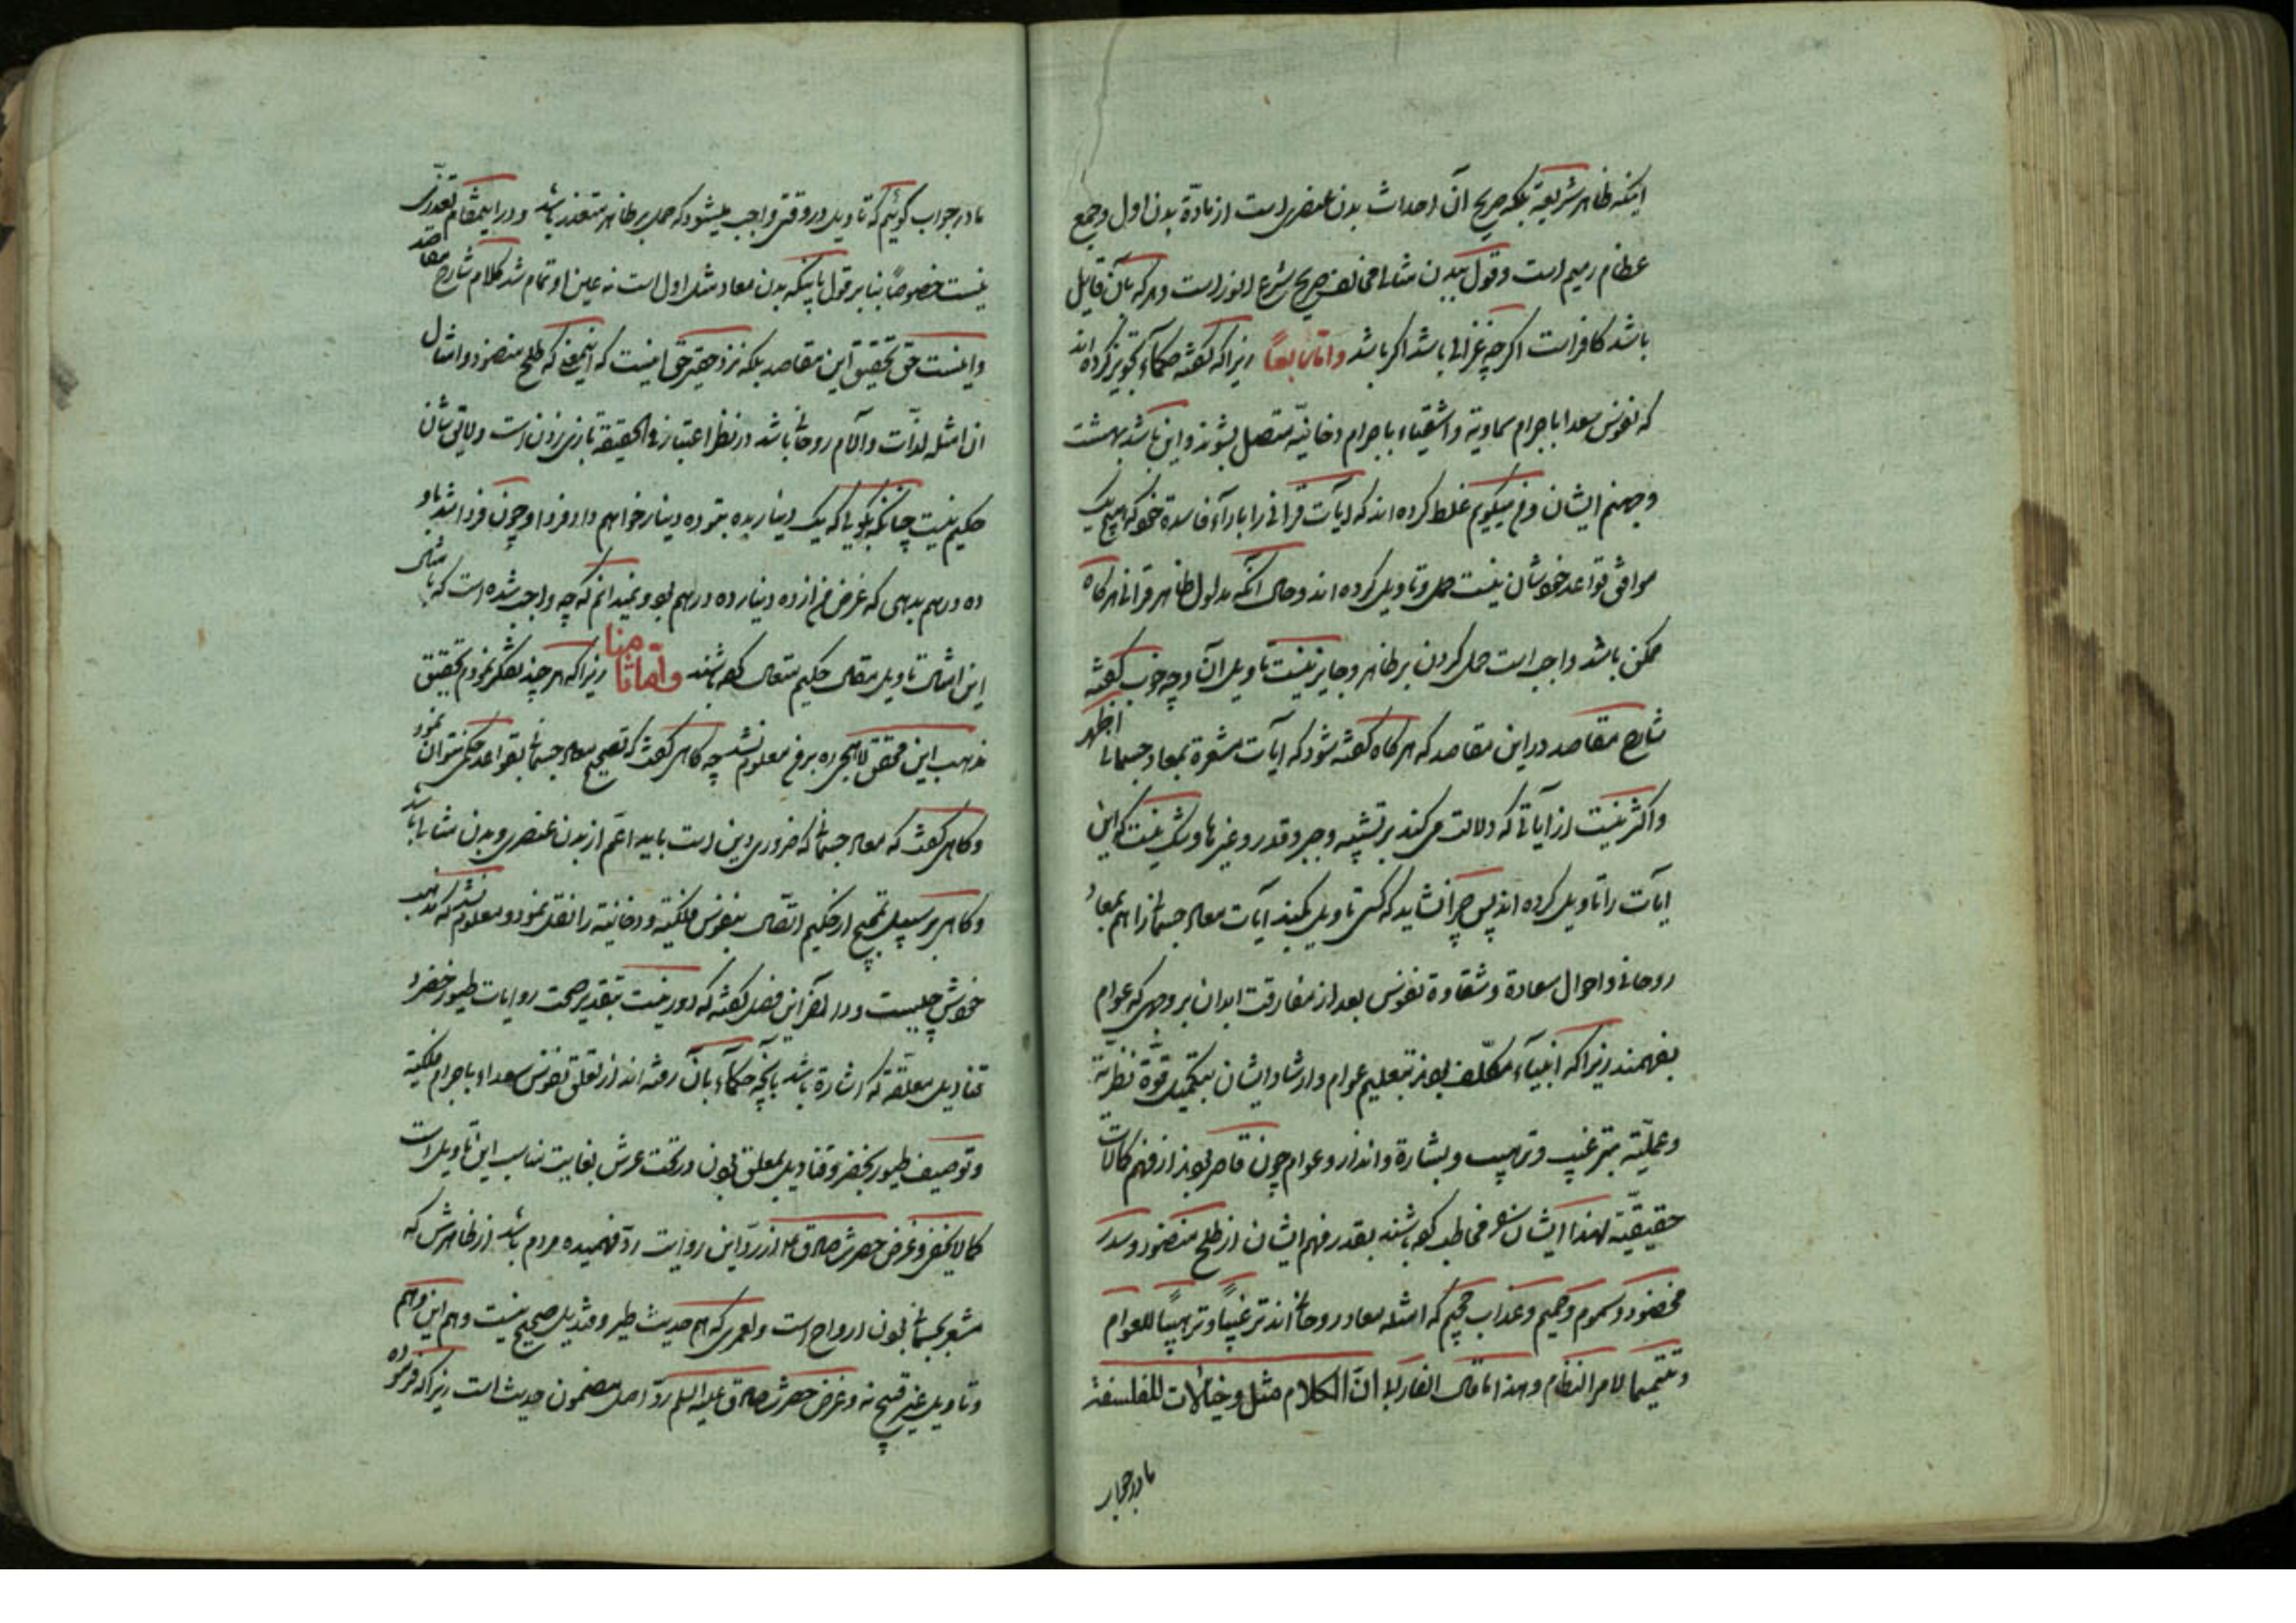 اینکه ظاهر شریعة بلکه صریح آن احداث بدن عنصری است از مادّة بدن اول و جمع
عظام رمیم است و قول ببدن مثالی مخالف صریح شرع انور است و هر که بآن قایل
باشد کافر است اگرچه غزالی باشد اگر باشد و اما سابعاً زیرا که گفته حکماء تجویز کرده اند
که نفوس سعدا باجرام سماویّه و اشقیاء باجرام دخانیّه متصل بشوند و این باشد بهشت
و جهنم ایشان و من میکویم غلط کرده اند که ایات قرانی را بارآء فاسدة خود که هیچ یک
موافق قواعد خودشان نیست حمل و تاویل کرده اند و حال آنکه مدلول ظاهر قرانی هرکاه
ممکن باشد واجب است حمل کردن بر ظاهر و جایز نیست تاویل آن و چه خوب گفته
شارح مقاصد در این مقاصد که هرکاه گفته شود که ایات مشعرة بمعاد جسمانی اظهر
و اکثر نیست از ایاتی که دلالت می کند بر تشبیه و جبر و قدر و غیرها و شک نیست که این
ایات را تاویل کرده اند پس چرا نشاید که کسی تاویل بکند ایات معاد جسمانی را هم بمعاد
روحانی و احوال سعادة و شقاوة نفوس بعد از مفارقت ابدان بر وجهی که عوام
بفهمند زیرا که انبیآء مکلّف بودند بتعلیم عوام و ارشاد ایشان بتکمیل قوّة نظریّة
و عملیّه بترغیب و ترهیب و بشارة و انذار و عوام چون قاصر بودند از فهم کمالات
حقیقیّه لهذا ایشان را مخاطب کرده باشند بقدر فهم ایشان از طلح منضود و سدر
مخضود و سموم و حمیم و عذاب جحیم که امثله معاد روحانی اند ترغیباً و ترهیباً للعوام
و تتمیما لامر النظام و هذا ما قال الفارابی ان الکلام مثل و خیالات للفلسفة
ما در جواب
ما در جواب گوئیم که تاویل در وقتی واجب میشود که حمل بر ظاهر متعذر باشد و در اینمقام تعذری
نیست خصوصاً بنابر قول باینکه بدن معاد مثل اول است نه عین او تمام شد کلام شارح مقاصد
و اینست حق تحقیق این مقاصد بلکه نزد حقیر حق اینست که اینمعنی که طلح منضود و امثال
ان امثله لذّات و آلام روحانی باشد در نظر اعتبار فی الحقیقة بازی زدن است و لایق شان
حکیم نیست چنانکه بکویی که یک دینار بده بتو ده دینار خواهم داد فردا و چون فردا شد باو
ده درهم بدهی که غرض من از ده دینار ده درهم بود و نمیدانم که چه واجب شده است که با مثال
این امثال تاویل مقال حکیم متعال کرده باشند و اما ثامنا زیرا که هر چند تفکر نمودم تحقیق
مذهب این محقق لاهجی ره بر من معلوم نشد چه کاهی گفت که تصحیح معاد جسمانی بقواعد حکمی نتوان نمود
و کاهی گفت که معاد جسمانی که ضروری دین است باید اعم از بدن عنصری و بدن مثالی باشد
و کاهی بر سبیل تمجیح از حکیم اتصال بنفوس فلکیّه و دخانیّه را نقل نمود و معلوم نشد که مذهب
خودش چیست و در آخر این فصل گفته که دور نیست بتقدیر صحت روایات طیور خضر و
قنادیل معلقة که اشارة باشد بآنچه حکماء بآن رفته اند از تعلق نفوس سعداء باجرام فلکیّه
و توصیف طیور بخضر و قنادیل بمعلق بودن در تحت عرش بغایت مناسب این تاویل است
کما لا یخفی و غرض حضرت صادق ع از ردّ این روایت ردّ فهمیده مردم باشد از ظاهرش که
مشعر بجسمانی بودن ارواح است و لعمری که هم حدیث طیر و قندیل صحیح نیست و هم این وهم
و تاویل غیر قبیح نه و غرض حضرت صادق علیه السلم ردّ اصل مضمون حدیث است زیرا که فرموده